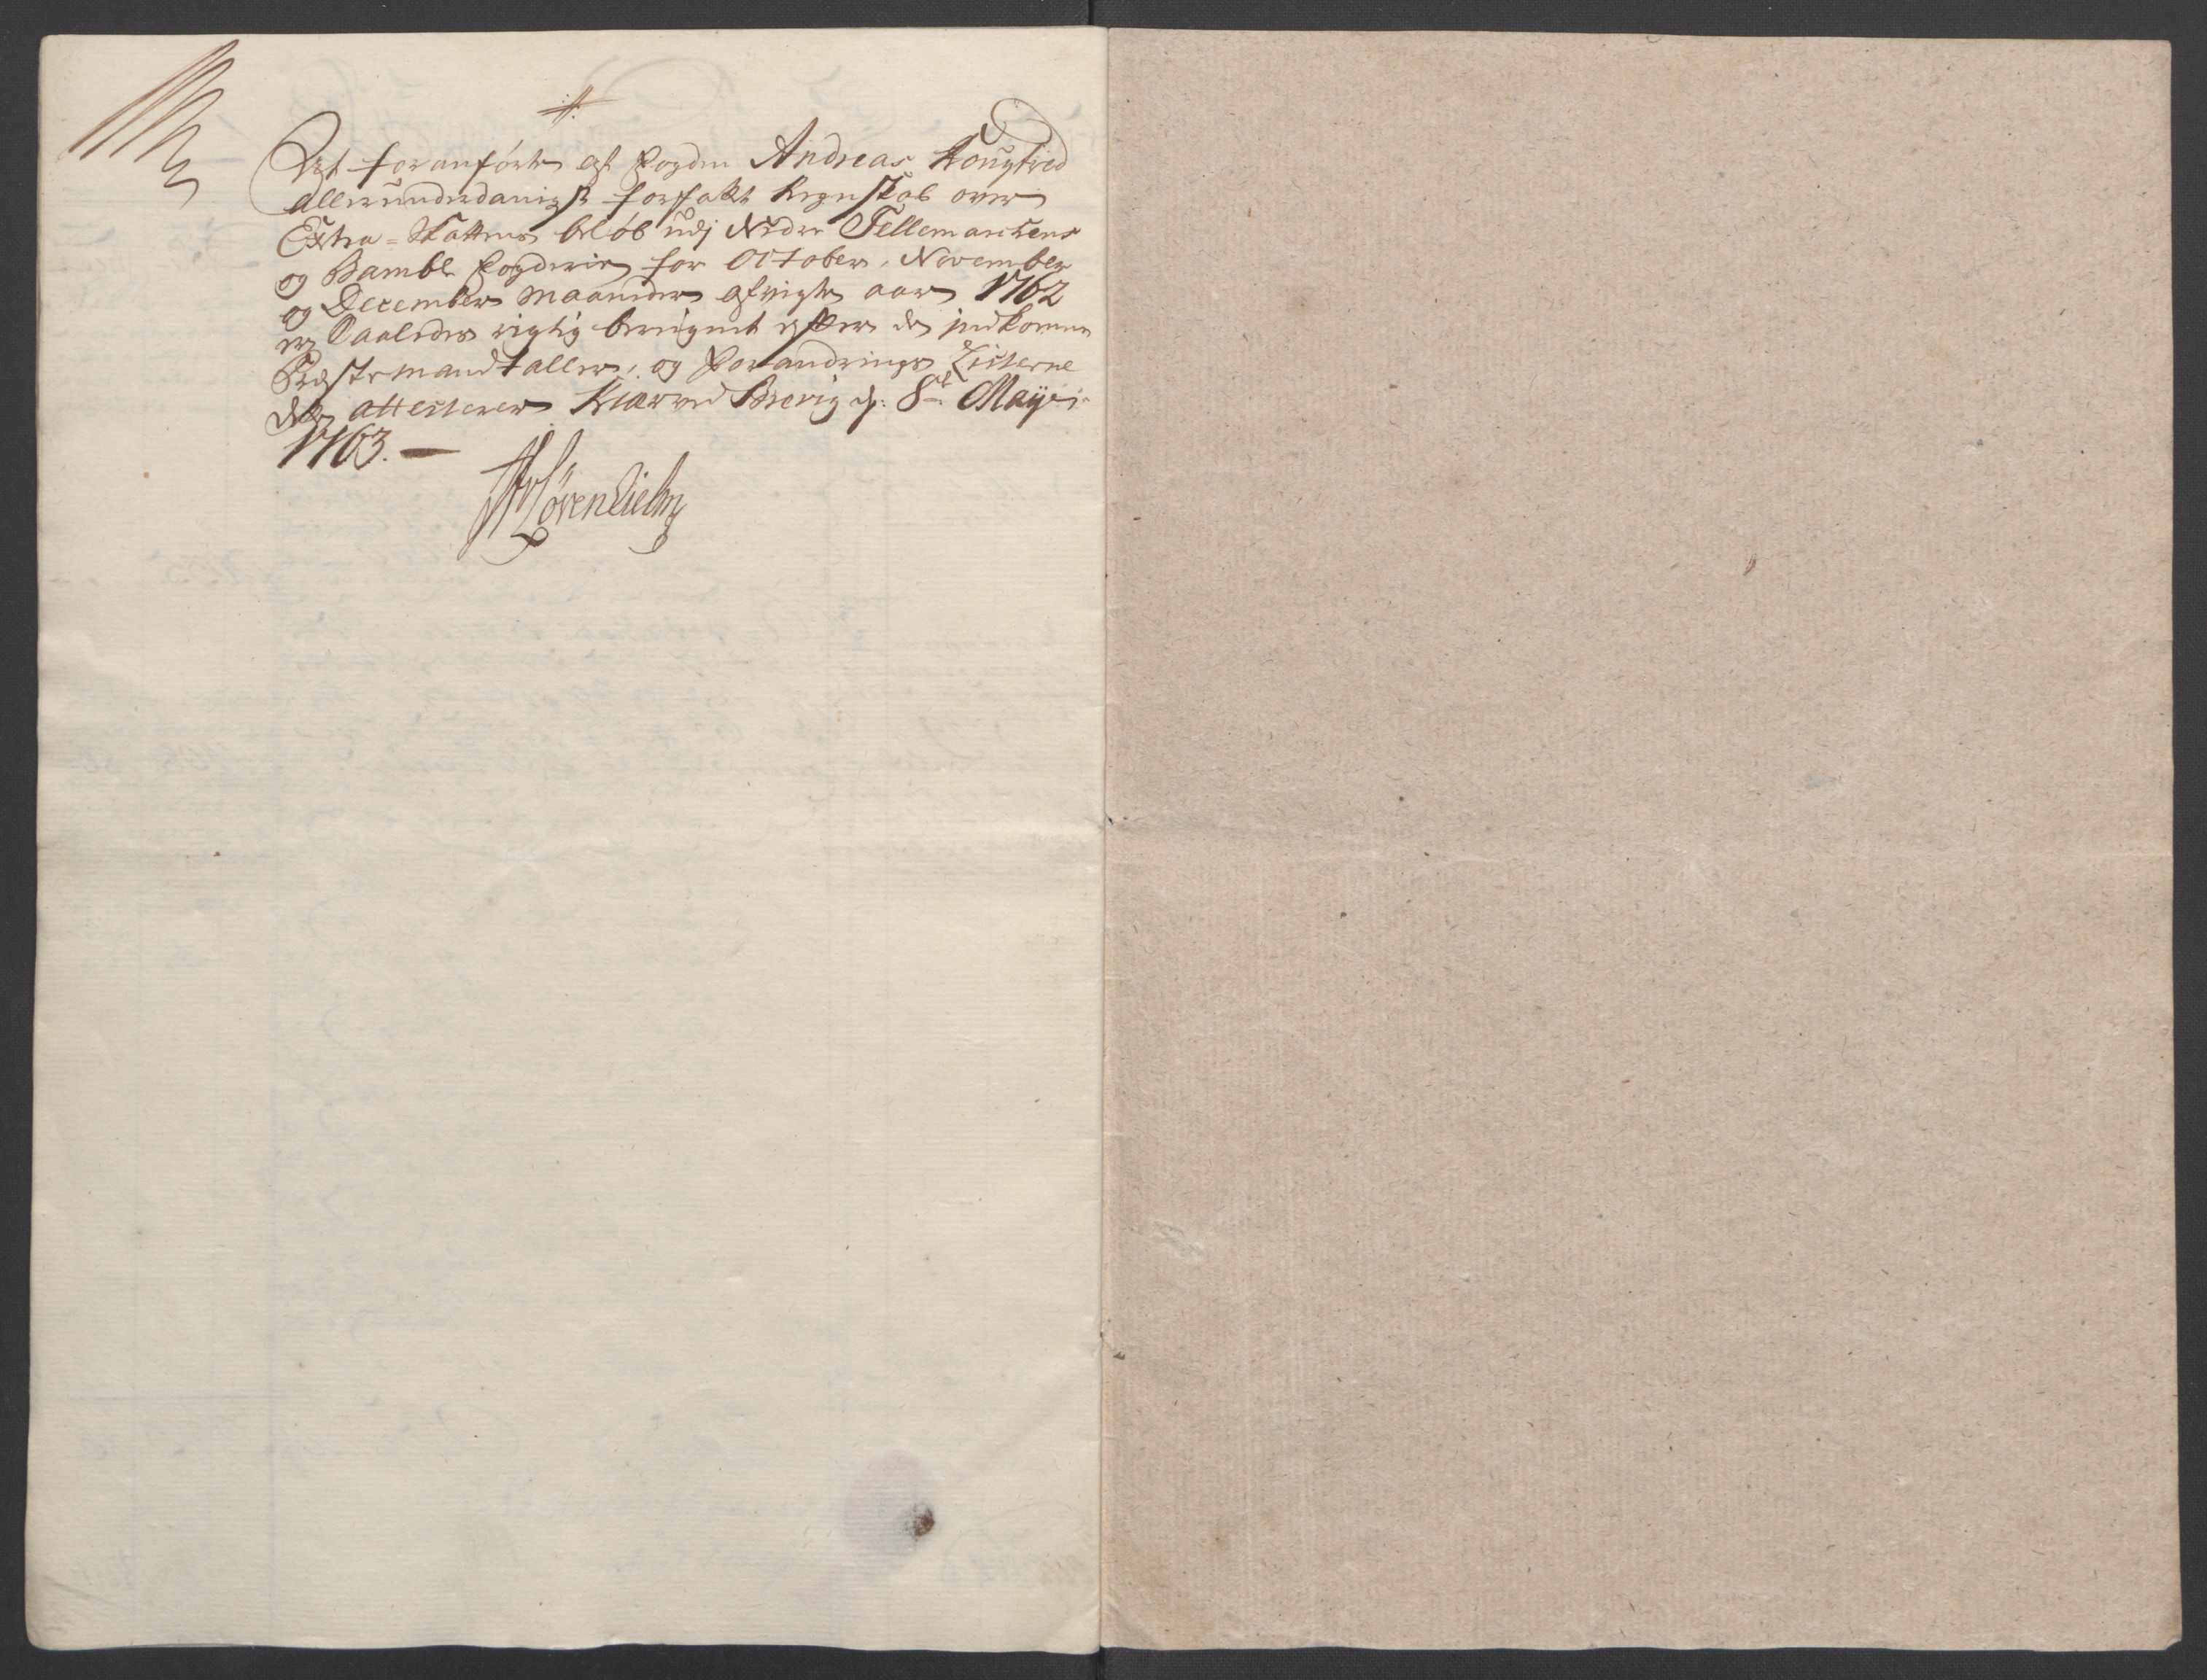 At foranførte af Fogden Andreas Kougtved
allerunderdanigst forfatte Regnskab over
Extra-Skattens beløb udj Neder Tellemarckens
og Bamble Fogderie for October, November
og December Maaneder afvigte aar 1762
er Saaledes rigtig beregnet efter de indkomne
Præstemandtaller, og Forandrings Listerne
det attesterer Kiær ved Brevig d: 8de Maÿ
1763.
Løvenhielm